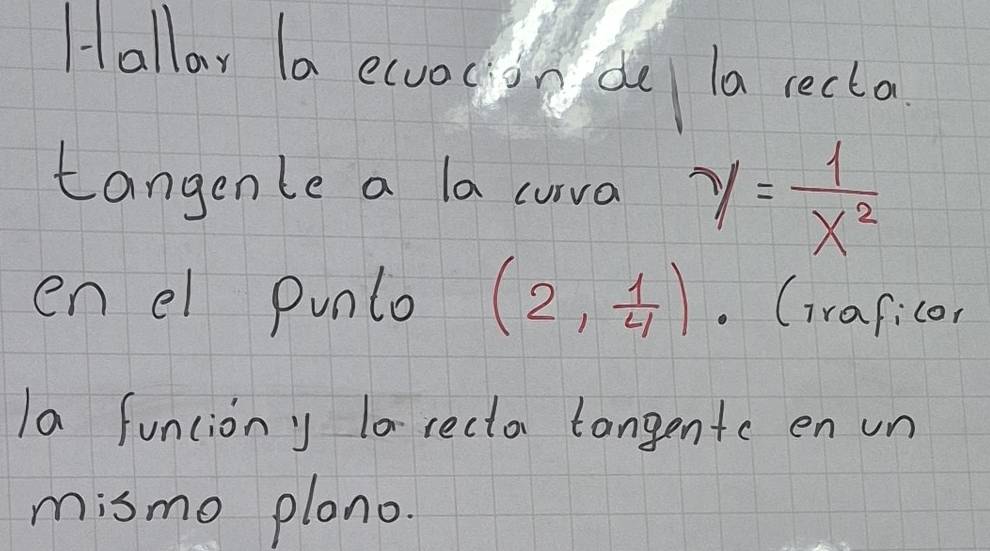 Hallar la ecuación de la recta.
tangente a la curva y = 1/x²
en el punto (2, 1/4). Graficar
la función y la recta tangente en un
mismo plano.